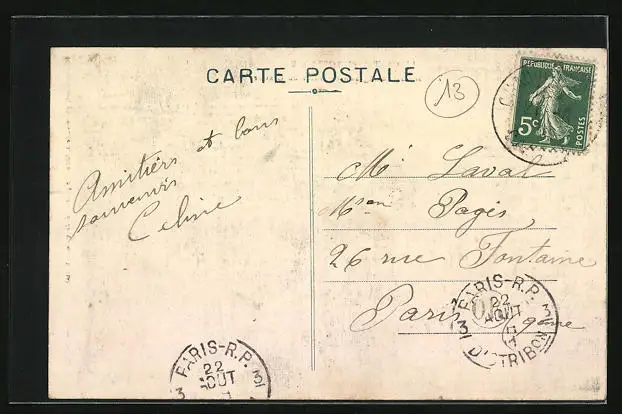 CARTE POSTALE
13
REPUBLIQUE FRANÇAISE
5c
POSTES
Amitiés et bons
souvenirs
Celine
Mr Laval
Mson Pagès
26 rue Fontaine
Paris 9eme
PARIS-R.P.
22
AOUT
3 3
DISTRIBON
PARIS-R.P.
22
AOUT
3 3